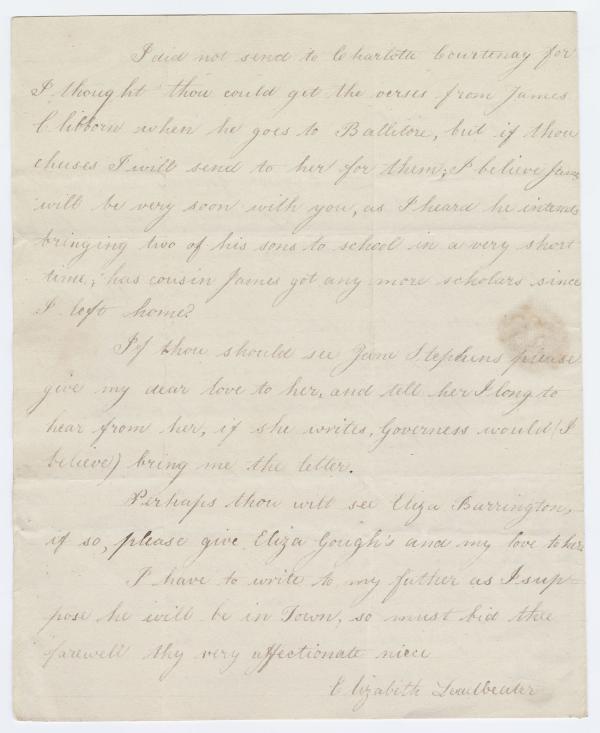 I did not send to Charlotte Courtenay for
I thought thou could get the verses from James
Clibborn when he goes to Ballitore, but if thou
chuses I will send to her for them; I believe James
will be very soon with you, as I heard he intends
bringing two of his sons to school in a very short
time; has cousin James got any more scholars since
I left home?
If thou should see Jane Stephens please
give my dear love to her, and tell her I long to
hear from her, if she writes, Governess would (I
believe) bring me the letter.
Perhaps thou will see Eliza Barrington,
if so, please give Eliza Gough's and my love to her
I have to write to my father as I sup-
pose he will be in Town, so must bid thee
farewell thy very affectionate niece
Elizabeth Leadbeater